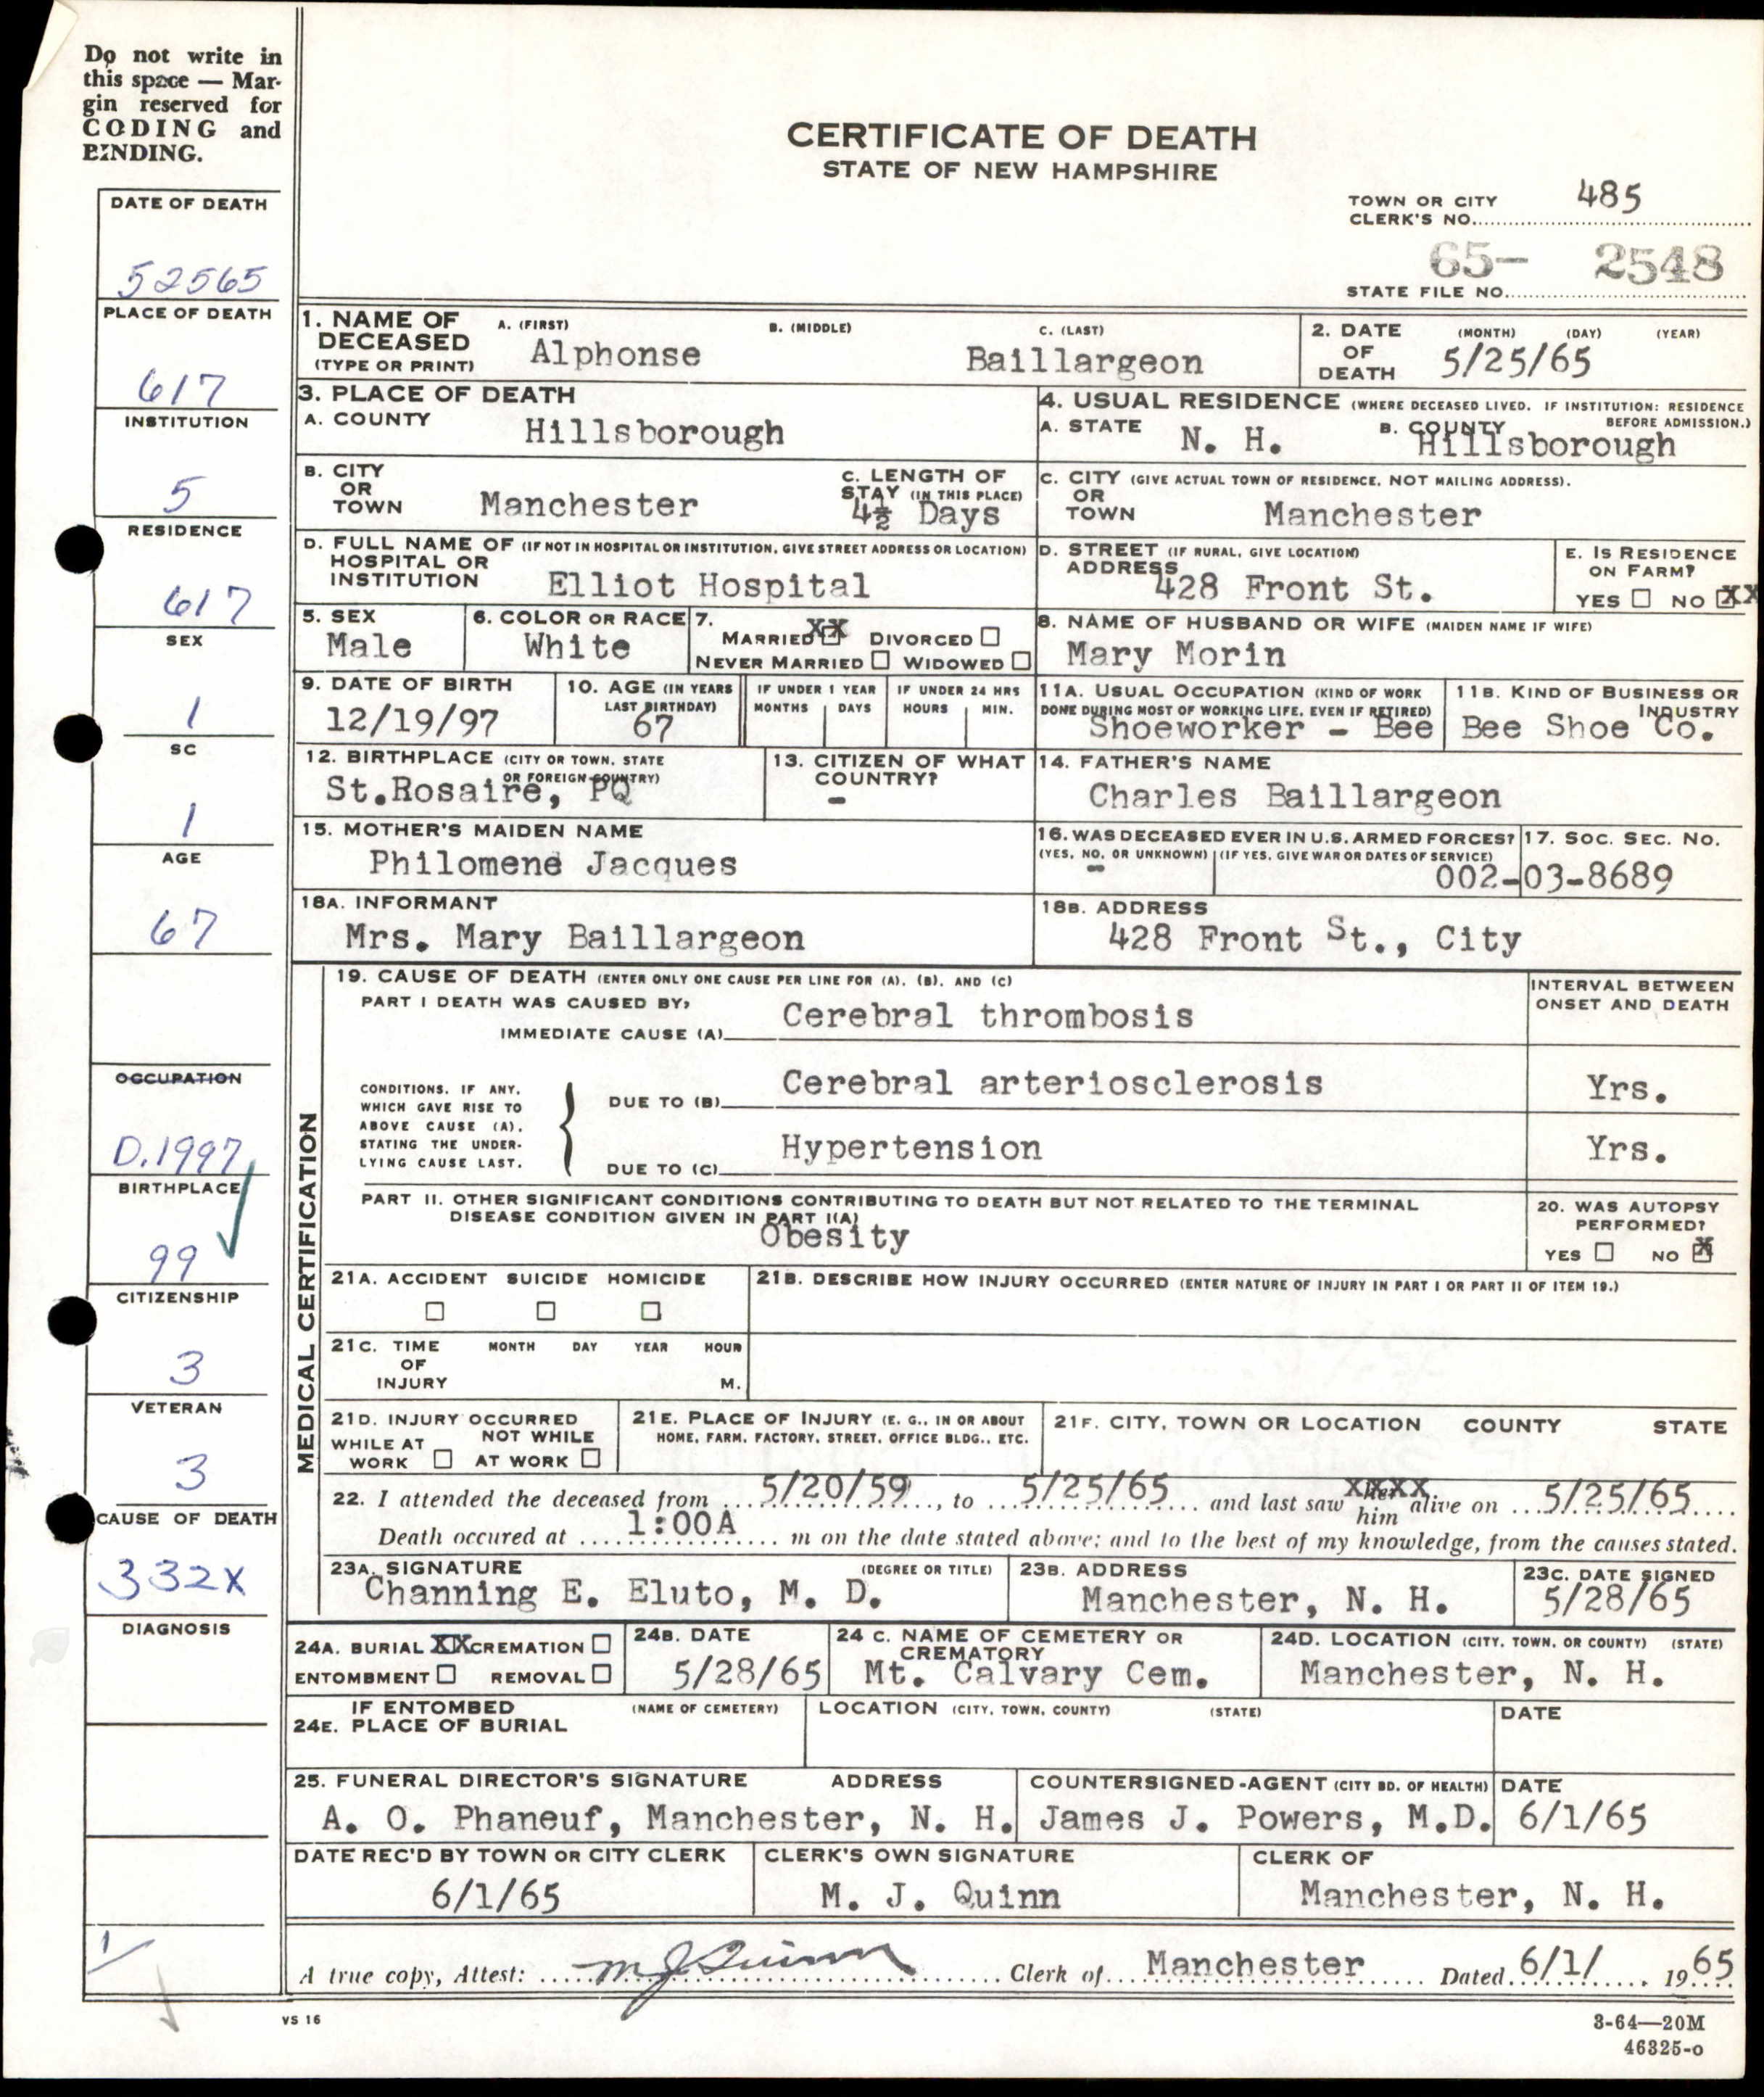 Do not write in
this space — Mar-
gin reserved for
CODING and
BINDING.
CERTIFICATE OF DEATH
STATE OF NEW HAMPSHIRE
TOWN OR CITY
CLERK'S NO. 485
65- 2548
STATE FILE NO.
DATE OF DEATH
52565
PLACE OF DEATH
617
INSTITUTION
5
RESIDENCE
617
SEX
1
SC
1
AGE
67
OCCUPATION
D.1997
BIRTHPLACE
99
CITIZENSHIP
3
VETERAN
3
CAUSE OF DEATH
332X
DIAGNOSIS
1/
1. NAME OF DECEASED (TYPE OR PRINT) A. (FIRST) B. (MIDDLE) C. (LAST)
Alphonse Baillargeon
2. DATE OF DEATH (MONTH) (DAY) (YEAR)
5/25/65
3. PLACE OF DEATH
A. COUNTY Hillsborough
4. USUAL RESIDENCE (WHERE DECEASED LIVED. IF INSTITUTION: RESIDENCE BEFORE ADMISSION.)
A. STATE N. H. B. COUNTY Hillsborough
B. CITY OR TOWN Manchester
C. LENGTH OF STAY (IN THIS PLACE) 4½ Days
C. CITY (GIVE ACTUAL TOWN OF RESIDENCE, NOT MAILING ADDRESS).
OR TOWN Manchester
D. FULL NAME OF (IF NOT IN HOSPITAL OR INSTITUTION, GIVE STREET ADDRESS OR LOCATION)
HOSPITAL OR INSTITUTION Elliot Hospital
D. STREET (IF RURAL, GIVE LOCATION)
ADDRESS 428 Front St.
E. IS RESIDENCE ON FARM?
YES NO XX
5. SEX
Male
6. COLOR OR RACE
White
7. MARRIED XX DIVORCED
NEVER MARRIED WIDOWED
8. NAME OF HUSBAND OR WIFE (MAIDEN NAME IF WIFE)
Mary Morin
9. DATE OF BIRTH
12/19/97
10. AGE (IN YEARS LAST BIRTHDAY)
67
IF UNDER 1 YEAR MONTHS DAYS
IF UNDER 24 HRS HOURS MIN.
11A. USUAL OCCUPATION (KIND OF WORK DONE DURING MOST OF WORKING LIFE, EVEN IF RETIRED)
Shoeworker - Bee
11B. KIND OF BUSINESS OR INDUSTRY
Bee Shoe Co.
12. BIRTHPLACE (CITY OR TOWN, STATE OR FOREIGN COUNTRY)
St.Rosaire, PQ
13. CITIZEN OF WHAT COUNTRY?
-
14. FATHER'S NAME
Charles Baillargeon
15. MOTHER'S MAIDEN NAME
Philomene Jacques
16. WAS DECEASED EVER IN U.S. ARMED FORCES?
(YES, NO, OR UNKNOWN) (IF YES, GIVE WAR OR DATES OF SERVICE)
-
17. SOC. SEC. NO.
002-03-8689
18A. INFORMANT
Mrs. Mary Baillargeon
18B. ADDRESS
428 Front St., City
MEDICAL CERTIFICATION
19. CAUSE OF DEATH (ENTER ONLY ONE CAUSE PER LINE FOR (A), (B), AND (C)
INTERVAL BETWEEN ONSET AND DEATH
PART I DEATH WAS CAUSED BY:
IMMEDIATE CAUSE (A) Cerebral thrombosis
CONDITIONS, IF ANY,
WHICH GAVE RISE TO
ABOVE CAUSE (A),
STATING THE UNDER-
LYING CAUSE LAST.
DUE TO (B) Cerebral arteriosclerosis Yrs.
DUE TO (C) Hypertension Yrs.
PART II. OTHER SIGNIFICANT CONDITIONS CONTRIBUTING TO DEATH BUT NOT RELATED TO THE TERMINAL
DISEASE CONDITION GIVEN IN PART I(A)
Obesity
20. WAS AUTOPSY PERFORMED?
YES NO X
21A. ACCIDENT SUICIDE HOMICIDE
21B. DESCRIBE HOW INJURY OCCURRED (ENTER NATURE OF INJURY IN PART I OR PART II OF ITEM 19.)
21C. TIME OF INJURY MONTH DAY YEAR HOUR M.
21D. INJURY OCCURRED
WHILE AT WORK NOT WHILE AT WORK
21E. PLACE OF INJURY (E. G., IN OR ABOUT HOME, FARM, FACTORY, STREET, OFFICE BLDG., ETC.
21F. CITY, TOWN OR LOCATION COUNTY STATE
22. I attended the deceased from 5/20/59, to 5/25/65 and last saw XXXX him alive on 5/25/65
Death occured at 1:00A m on the date stated above; and to the best of my knowledge, from the causes stated.
23A. SIGNATURE (DEGREE OR TITLE)
Channing E. Eluto, M. D.
23B. ADDRESS
Manchester, N. H.
23C. DATE SIGNED
5/28/65
24A. BURIAL XX CREMATION
ENTOMBMENT REMOVAL
24B. DATE
5/28/65
24 C. NAME OF CEMETERY OR CREMATORY
Mt. Calvary Cem.
24D. LOCATION (CITY, TOWN, OR COUNTY) (STATE)
Manchester, N. H.
IF ENTOMBED (NAME OF CEMETERY) LOCATION (CITY, TOWN, COUNTY) (STATE) DATE
24E. PLACE OF BURIAL
25. FUNERAL DIRECTOR'S SIGNATURE ADDRESS
A. O. Phaneuf, Manchester, N. H.
COUNTERSIGNED-AGENT (CITY BD. OF HEALTH)
James J. Powers, M.D.
DATE
6/1/65
DATE REC'D BY TOWN OR CITY CLERK
6/1/65
CLERK'S OWN SIGNATURE
M. J. Quinn
CLERK OF
Manchester, N. H.
A true copy, Attest: M J Quinn Clerk of Manchester Dated 6/1/ 1965
VS 16
3-64—20M
46325-o